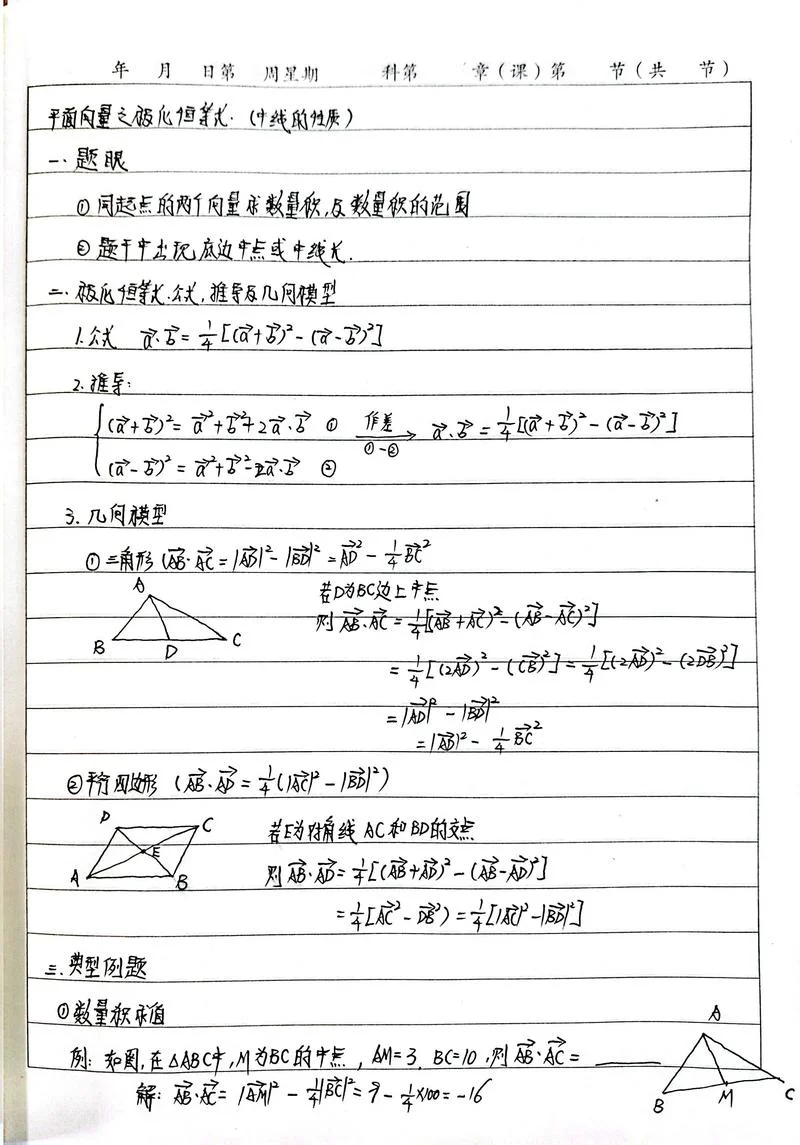 年 月 日第 周星期 科第 章(课)第 节(共 节)
平面向量之极化恒等式.(中线的性质)
一.题眼
①同起点的两个向量求数量积,及数量积的范围
②题干中出现底边中点或中线长.
二.极化恒等式.公式,推导及几何模型
1.公式 a⃗·b⃗=1/4[(a⃗+b⃗)²-(a⃗-b⃗)²]
2.推导:
(a⃗+b⃗)²=a⃗²+b⃗²+2a⃗·b⃗ ① 作差 ①-② → a⃗·b⃗=1/4[(a⃗+b⃗)²-(a⃗-b⃗)²]
(a⃗-b⃗)²=a⃗²+b⃗²-2a⃗·b⃗ ②
3.几何模型
①三角形(AB⃗·AC⃗=|AD⃗|²-|BD⃗|²=AD⃗²-1/4BC⃗²
A
B D C
若D为BC边上中点
则AB⃗·AC⃗=1/4[(AB⃗+AC⃗)²-(AB⃗-AC⃗)²]
=1/4[(2AD⃗)²-(CB⃗)²]=1/4[(2AD⃗)²-(2DB⃗)²]
=|AD⃗|²-|BD⃗|²
=|AD⃗|²-1/4BC⃗²
②平行四边形(AB⃗·AD⃗=1/4(|AC⃗|²-|BD⃗|²)
D C
E
A B
若E为对角线AC和BD的交点
则AB⃗·AD⃗=1/4[(AB⃗+AD⃗)²-(AB⃗-AD⃗)²]
=1/4[AC⃗²-DB⃗²)=1/4[|AC⃗|²-|BD⃗|²]
三.典型例题
①数量积求值
例:如图,在△ABC中,M为BC的中点,AM=3.BC=10,则AB⃗·AC⃗=______
解:AB⃗·AC⃗=|AM⃗|²-1/4|BC⃗|²=9-1/4×100=-16
A
B M C